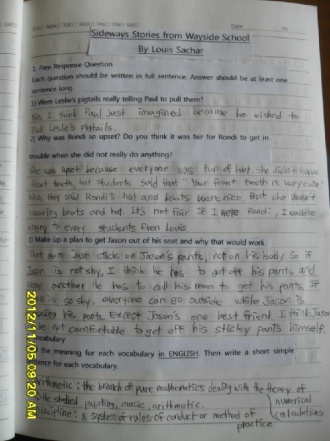 Sideways Stories from Wayside School
By Louis Sachar
1. Free Response Question
Each question should be written in full sentence. Answer should be at least one
sentence long
1) Were Leslie's pigtails really telling Paul to pull them?
No, I think Paul just imagined because he wished to
pull Leslie's pigtails.
2) Why was Rondi so upset? Do you think it was fair for Rondi to get in
trouble when she did not really do anything?
She was upset because everyone was fun of her she didn't have
front teeth, but students said that "Your front teeth is very cute."
Also, they said Rondi's hat and boots were nice. But she wasn't
wearing boots and hat. It's not fair. If I were Rondi, I would be
angry to every students even Louis.
3) Make up a plan to get Jason out of his seat and why that would work
That gum just stick on Jason's pants, not on his body. So if
Jason is not shy, I think he has to get off his pants and
wear another. He has to call his mom to get his pants. If
is so shy, everyone can go outside while Jason is
his pants. Except Jason's one best friend. I think Jason
be not comfortable to get off his sticky pants himself.
the meaning for each vocabulary in ENGLISH. Then write a short simple
sentence for each vocabulary.
arithmetic : the branch of pure mathematics dealing with the theory of
numerical
calculations
studied painting, music, arithmetic.
discipline : a system of rules of conduct or method of
practice
2012/11/05 09:20 AM